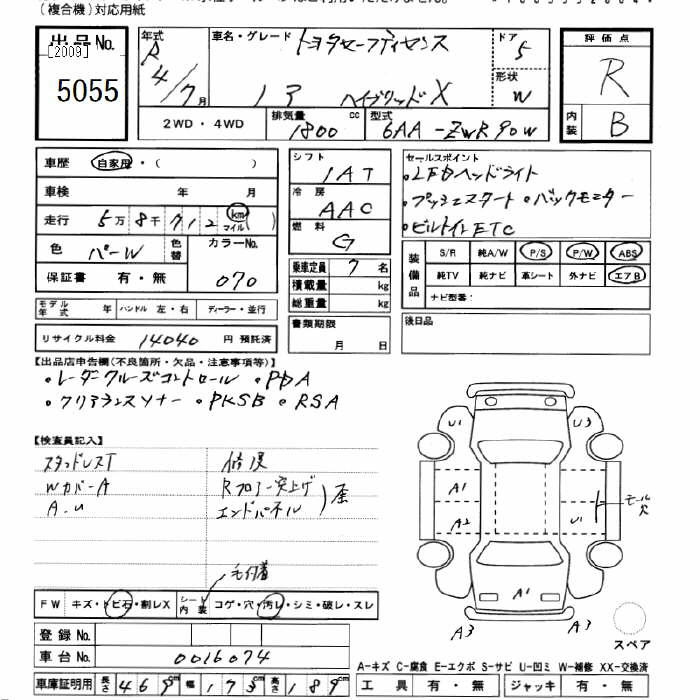 (複合機)対応用紙
出品No.
[2009]
5055
年式
R
4/7月
車名・グレード
トヨタセーフティセンス
ドア
5
1ア ハイブリッドX
形状
W
2WD・4WD
排気量
1800
cc
型式
6AA-ZWR90W
評価点
R
内装
B
車歴 自家用・( )
車検 年 月
走行 5万8千712 km マイル( )
色 パーW
色替
カラーNo.
070
保証書 有・無
モデル年式 年 ハンドル 左・右 ディーラー・並行
リサイクル料金 14040 円預託済
シフト
IAT
冷房
AAC
燃料
G
乗車定員 7 名
積載量 kg
総重量 kg
書類期限
月 日
セールスポイント
・LEDヘッドライト
・プッシュスタート・バックモニター
・ビルトインETC
装備品
S/R 純A/W P/S P/W ABS
純TV 純ナビ 革シート 外ナビ エアB
ナビ型番:
後日品
【出品店申告欄(不良箇所・欠品・注意事項等)】
・レーダークルーズコントロール ・PDA
・クリアランスソナー ・PKSB ・RSA
【検査員記入】
スタッドレスT
Wカバー A
A.U
修復
Rフロアー突上げ
エンドパネル
)歪
毛付着
FW キズ・トビ石・割レX
シート内装 コゲ・穴・汚レ・シミ・破レ・スレ
登録No.
車台No. 0016074
車庫証明用 長さ 469cm 幅 173cm 高さ 189cm
U1
U3
A1
A2
U1
モール欠
A1
A3
A3
スペア
A-キズ C-腐食 E-エクボ S-サビ U-凹ミ W-補修 XX-交換済
工具 有・無 ジャッキ 有・無